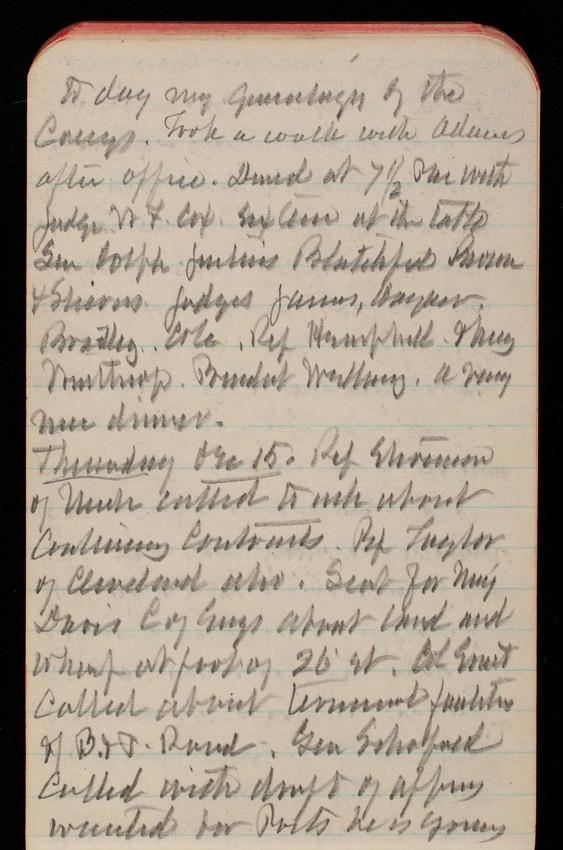 to day my genealogy of the
Caseys. Took a walk with Adams
after office. Dined at 7 1/2 P.M. with
Judge W F. Cox. Sixteen at the table
Gen Dolph Justices Blatchford Brown
& Shiras. Judges James,
Bradley. Cole, Rep Hemphill.
Winthrop. Welling. a very
nice dinner.
Thursday Dec 15. Rep
of Mich called to ask about
Continuing Contracts. Rep Taylor
of Cleveland also. Sent for Maj
Davis C of Engs about land and
wharf at foot of 26 st. Col Ernst
Called about terminal facilities
of B. & P. Road. Gen Schofield
Called with draft of
wanted for Posts he is